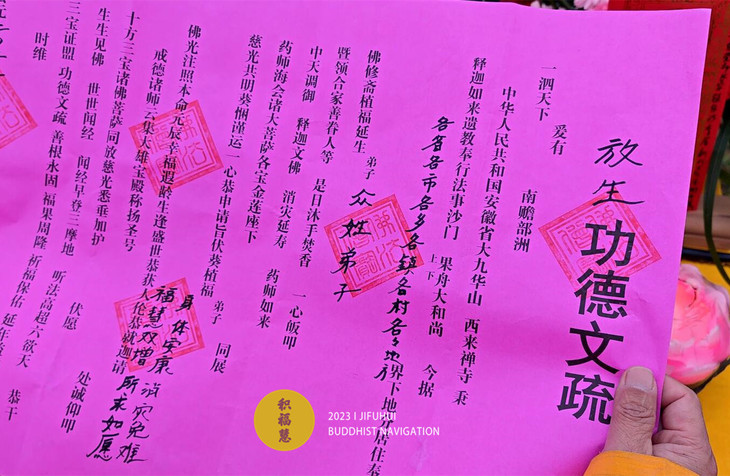 放生功德文疏
一泗天下 爰有 南赡部洲
中华人民共和国安徽省大九华山 西来禅寺 秉
释迦如来遗教奉行法事沙门 上果下舟大和尚 今据
各省各市各乡各镇各村各地 界下地分居住奉
佛修斋植福延生 弟子 众姓弟子
暨领合家善眷人等 是日沐手焚香 一心皈叩
中天调御 释迦文佛 消灾延寿 药师如来
药师海会诸大菩萨各宝金莲座下
慈光共明葵悃谨运一心恭申请旨伏葵植福 弟子 同展
佛光注照本命元辰幸福遐龄生逢盛世恭获人伦恭就迦请
福慧双增 身体安康 消灾免难 所求如愿
戒德诸师云集大雄宝殿称扬圣号
十方三宝诸佛菩萨同放慈光悉垂加护
生生见佛 世世闻经 闻经早登三摩地 听法高超六欲天
三宝证盟 功德文疏 善根永固 福果周隆 祈福保佑 延年益
伏愿 处诚仰叩
时维 恭干
积福慧
2023 I JIFUHUI
BUDDHIST NAVIGATION